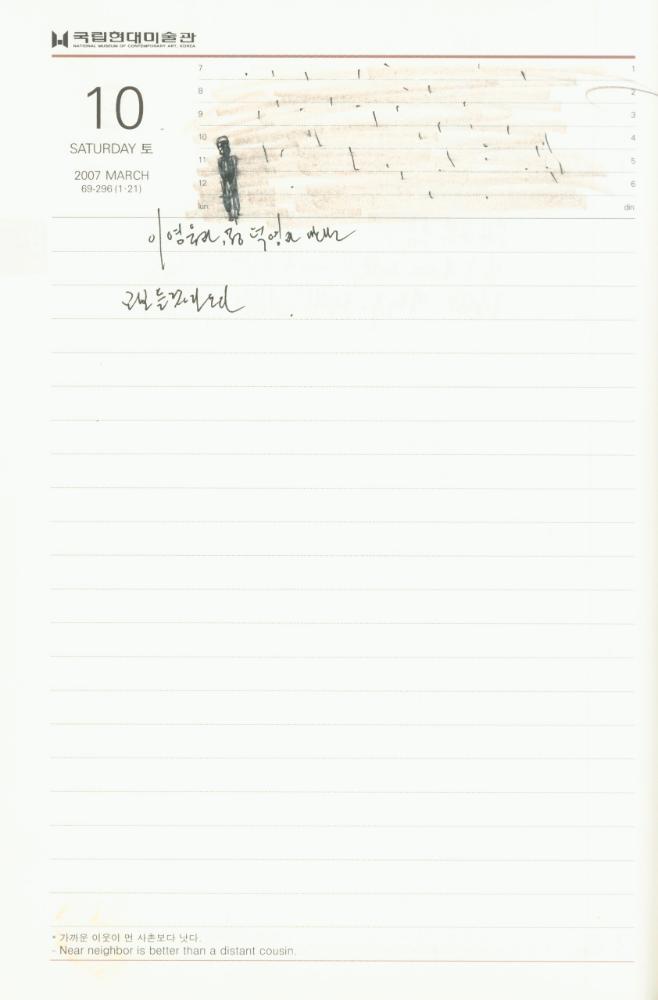 국립현대미술관
NATIONAL MUSEUM OF CONTEMPORARY ART, KOREA
10
SATURDAY 토
2007 MARCH
69-296 (1·21)
7
8
9
10
11
12
lun
1
2
3
4
5
6
din
* 가까운 이웃이 먼 사촌보다 낫다.
- Near neighbor is better than a distant cousin.